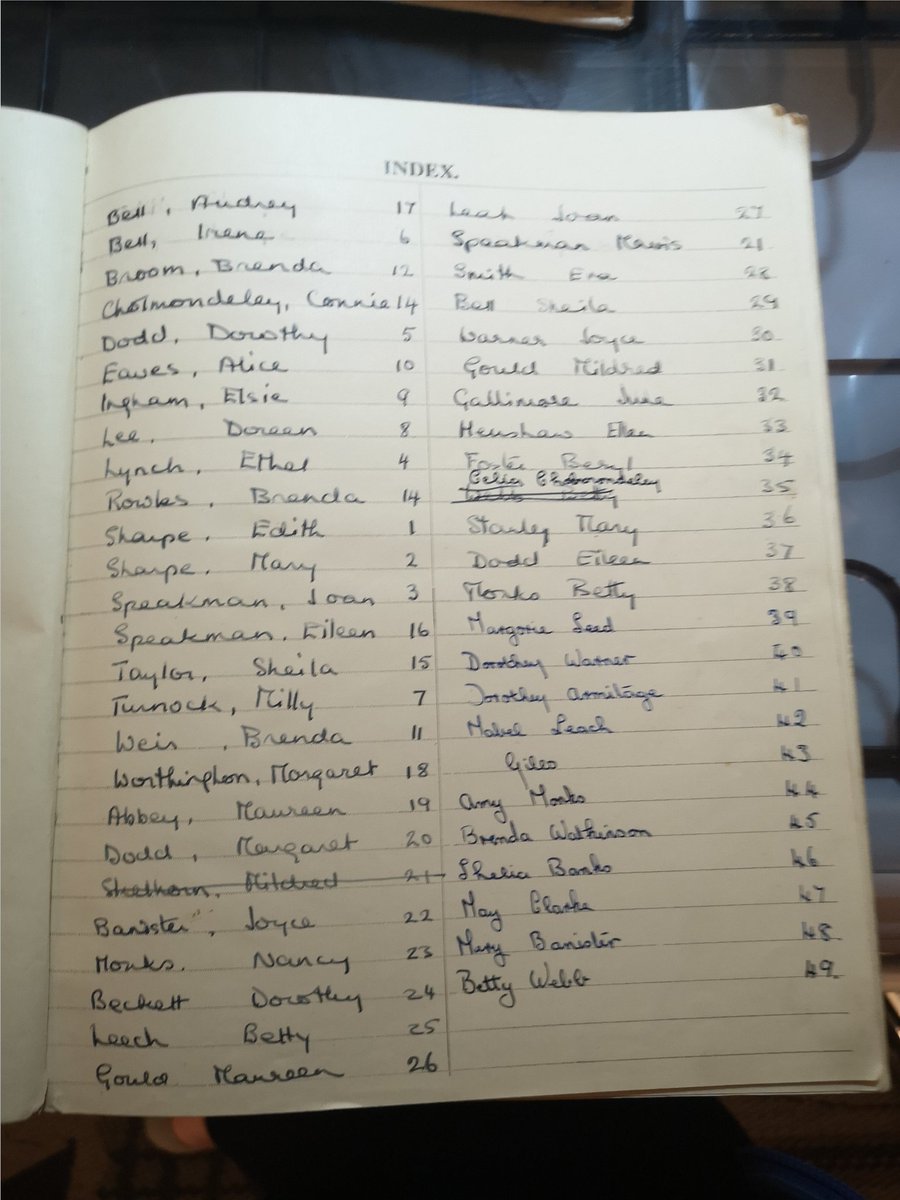 INDEX.
Bell, Audrey 17
Bell, Irene 6
Broom, Brenda 12
Cholmondeley, Connie 14
Dodd, Dorothy 5
Eaves, Alice 10
Ingham, Elsie 9
Lee, Doreen 8
Lynch, Ethel 4
Rowles, Brenda 14
Sharpe, Edith 1
Sharpe, Mary 2
Speakman, Joan 3
Speakman, Eileen 16
Taylor, Sheila 15
Turnock, Milly 7
Weir, Brenda 11
Worthington, Margaret 18
Abbey, Maureen 19
Dodd, Margaret 20
Mildred 21
Banister, Joyce 22
Monks, Nancy 23
Beckett Dorothy 24
Leech Betty 25
Gould Maureen 26
Leah Joan 27
Speakman 21
Smith Eva 28
Bell Sheila 29
Warner Joyce 30
Gould Mildred 31
Gallimore June 32
Henshaw Ellen 33
Foster Beryl 34
Celia
Webb Betty 35
Stanley Mary 36
Dodd Eileen 37
Monks Betty 38
Margorie Leed 39
Dorothey Warner 40
Dorothey Armitage 41
Mabel Leach 42
Giles 43
Amy Monks 44
Brenda Wathinson 45
Shelia Banks 46
May Clarke 47
Mary Banister 48
Betty Webb 49